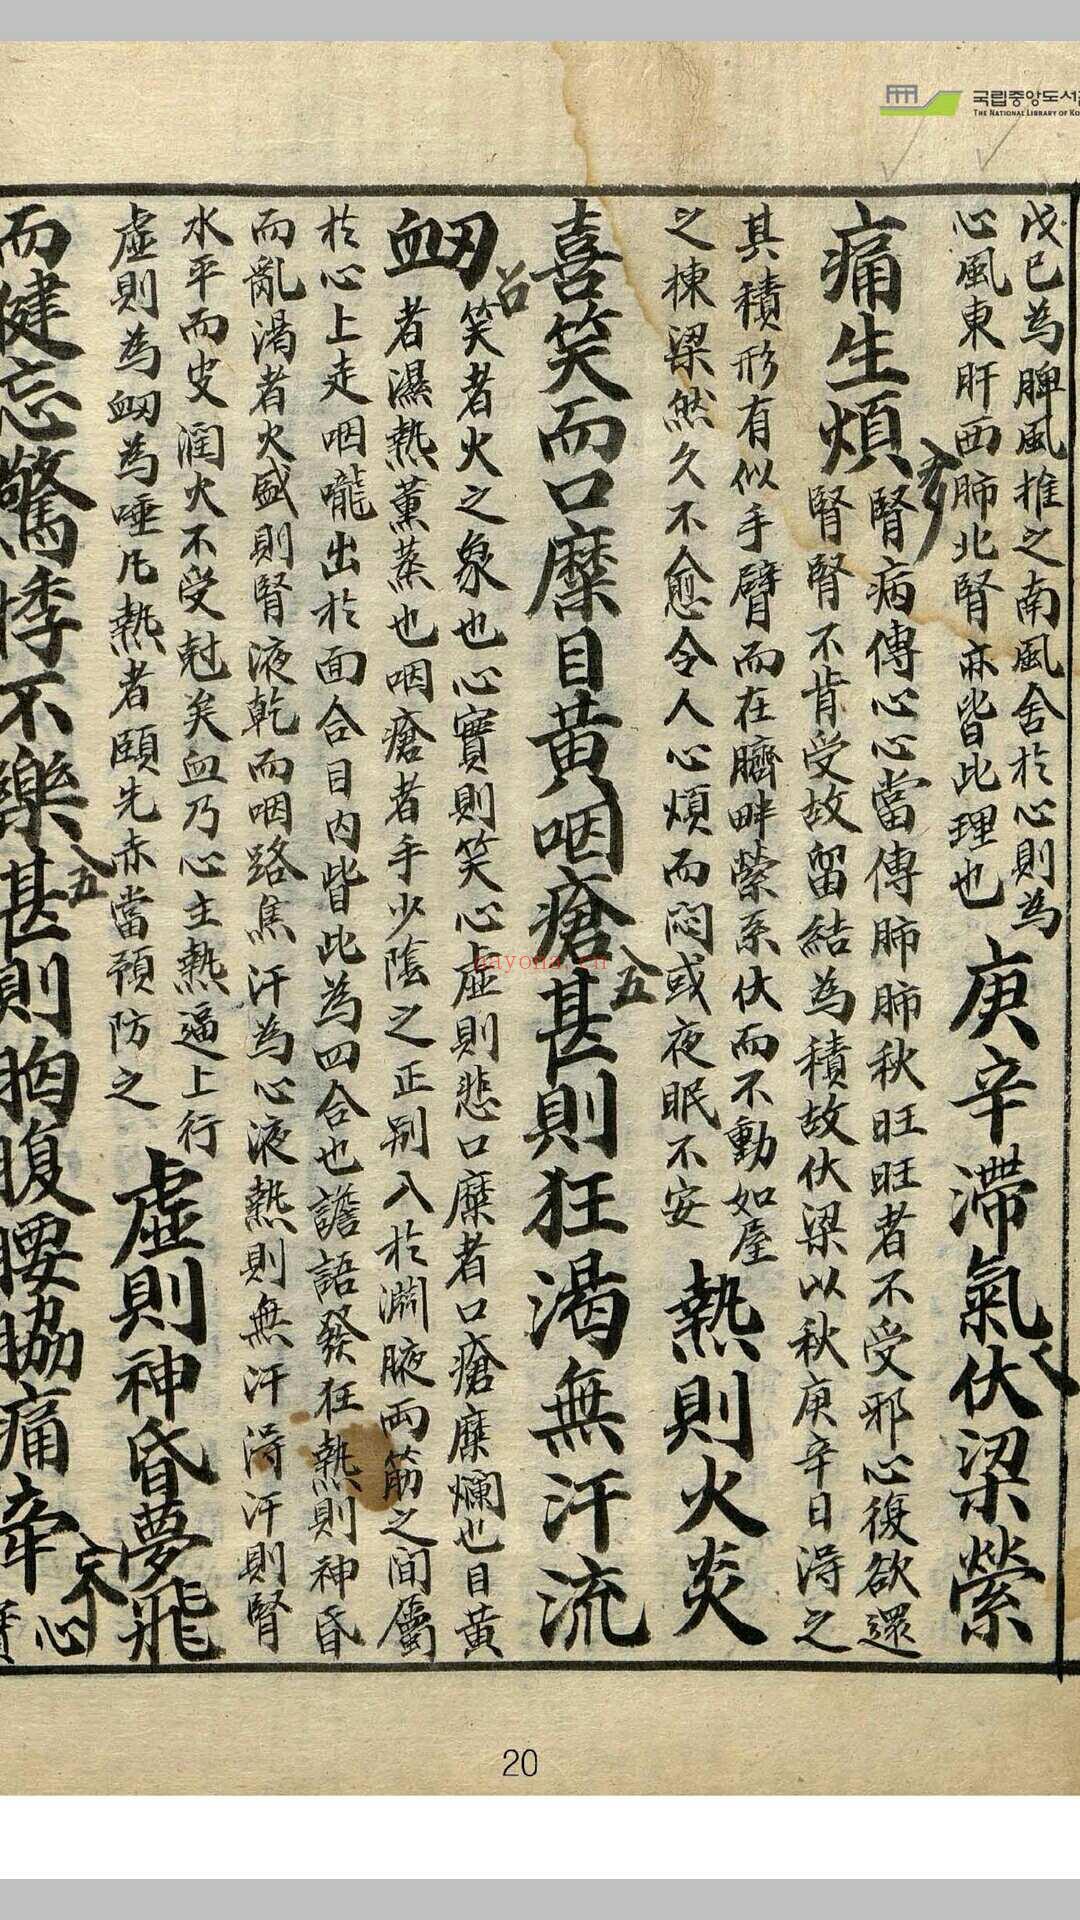 국립중앙도서관
THE NATIONAL LIBRARY OF KO
戊巳為脾風推之南風舍於心則為
心風東肝西肺北腎亦皆此理也
庚辛滯氣伏梁縈
痛生煩
腎病傳心心當傳肺肺秋旺旺者不受邪心復欲還
腎腎不肯受故留結為積故伏梁以秋庚辛日得之
其積形有似手臂而在臍畔縈系伏而不動如屋
之棟梁然久不愈令人心煩而悶或夜眠不安
熱則火炎
喜笑而口糜目黃咽瘡甚則狂渴無汗流
衂
笑者火之象也心實則笑心虛則悲口糜者口瘡糜爛也目黃
者濕熱薰蒸也咽瘡者手少陰之正別入於淵腋兩筋之間屬
於心上走咽嚨出於面合目內眥此為四合也譫語發狂熱則神昏
而亂渴者火盛則腎液乾而咽路焦汗為心液熱則無汗得汗則腎
水平而皮潤火不受尅矣血乃心主熱逼上行
虛則為衂為唾凡熱者頤先赤當預防之
虛則神昏夢飛
而健忘驚悸不樂甚則胸腹腰脇痛牽
心
實
五
五
hayona.cn
20